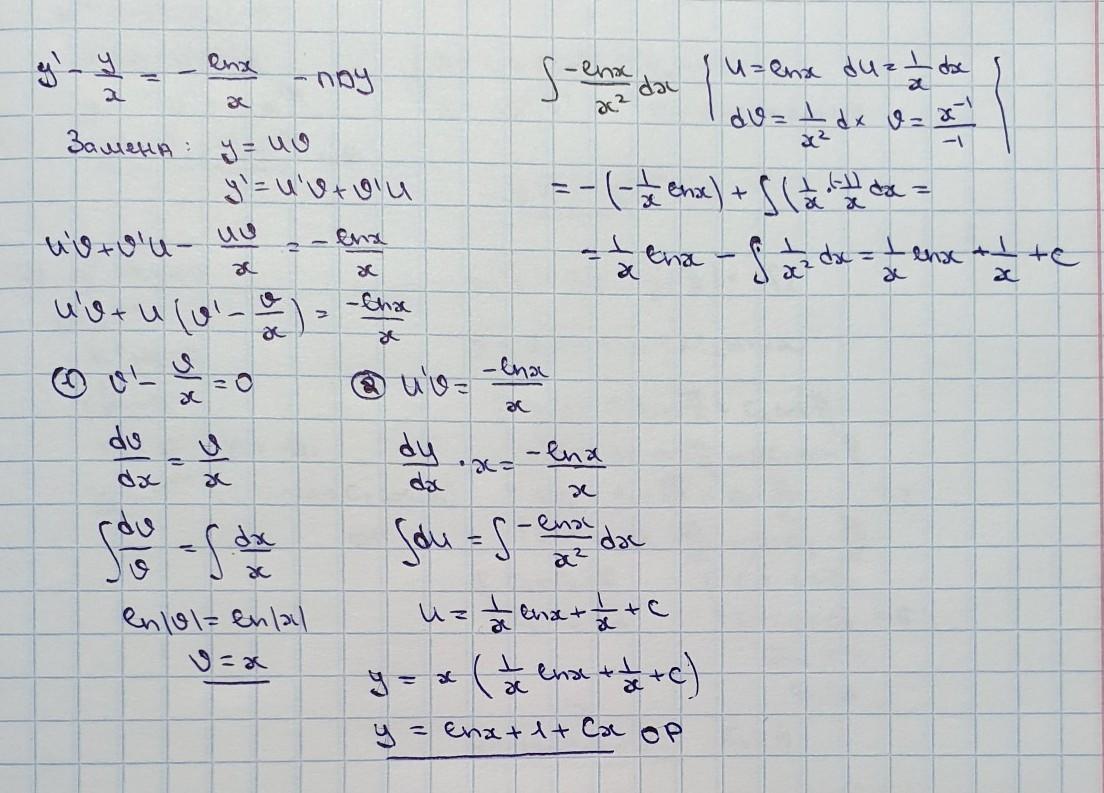 y' - y/x = - lnx/x - ЛДУ
Замена: y = uv
y' = u'v + v'u
u'v + v'u - uv/x = - lnx/x
u'v + u (v' - v/x) = -lnx/x
① v' - v/x = 0
dv/dx = v/x
∫ dv/v = ∫ dx/x
ln|v| = ln|x|
v = x
② u'v = -lnx/x
dy/dx · x = -lnx/x
∫du = ∫ -lnx/x² dx
u = 1/x lnx + 1/x + C
y = x (1/x lnx + 1/x + C)
y = lnx + 1 + Cx ОР
∫ -lnx/x² dx | u = lnx du = 1/x dx
dv = 1/x² dx v = x⁻¹/-1 |
= - (- 1/x lnx) + ∫ (1/x · (-1)/x dx =
= 1/x lnx - ∫ 1/x² dx = 1/x lnx + 1/x + C